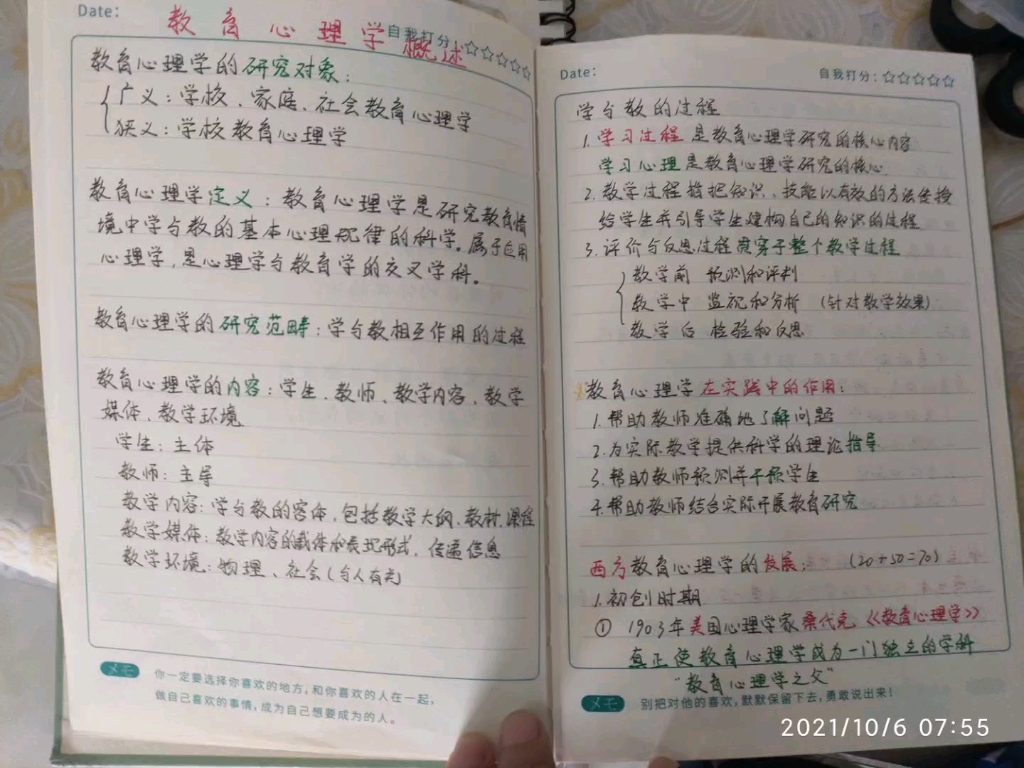 Date:
教育心理学概述
自我打分:☆☆☆☆☆
教育心理学的研究对象:
广义:学校、家庭、社会教育心理学
狭义:学校教育心理学
教育心理学定义:教育心理学是研究教育情
境中学与教的基本心理规律的科学。属于应用
心理学,是心理学与教育学的交叉学科。
教育心理学的研究范畴:学与教相互作用的过程
教育心理学的内容:学生、教师、教学内容、教学
媒体、教学环境
学生:主体
教师:主导
教学内容:学与教的客体,包括教学大纲、教材、课程
教学媒体:教学内容的载体和表现形式,传递信息
教学环境:物理、社会(与人有关
メモ
你一定要选择你喜欢的地方,和你喜欢的人在一起,
做自己喜欢的事情,成为自己想要成为的人。
Date:
自我打分:☆☆☆☆☆
学与教的过程
1.学习过程是教育心理学研究的核心内容
学习心理是教育心理学研究的核心
2.教学过程指把知识、技能以有效的方法传授
给学生并引导学生建构自己的知识的过程
3.评价与反思过程贯穿于整个教学过程
教学前 预测和评判
教学中 监视和分析 (针对教学效果)
教学后 检验和反思
教育心理学在实践中的作用:
1.帮助教师准确地了解问题
2.为实际教学提供科学的理论指导
3.帮助教师预测并干预学生
4.帮助教师结合实际开展教育研究
西方教育心理学的发展: (20+50=70)
1.初创时期
① 1903年美国心理学家桑代克《教育心理学》
真正使教育心理学成为一门独立的学科
“教育心理学之父”
メモ
别把对他的喜欢,默默保留下去,勇敢说出来!
2021/10/6 07:55